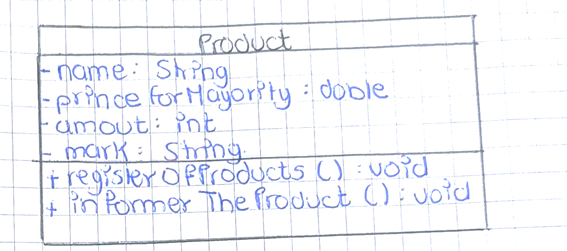 Product
- name: String
- prince forMayority : doble
- amout: int
- mark: String
+ register Of Products () : void
+ informer The Product () : void